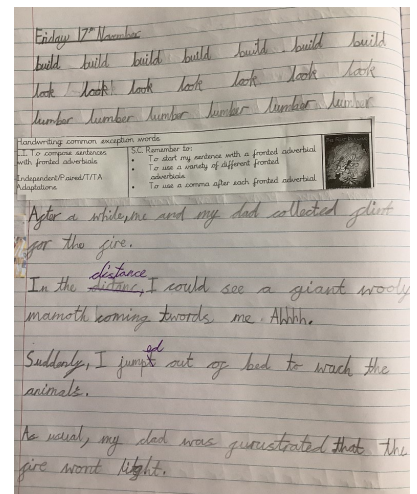 Friday 17th November
build build build build build build build
look look look look look look look
lumber lumber lumber lumber lumber lumber
Handwriting: common exception words
L.I. To compose sentences with fronted adverbials
Independent/Paired/T/TA
Adaptations
S.C. Remember to:
• To start my sentence with a fronted adverbial
• To use a variety of different fronted adverbials
• To use a comma after each fronted adverbial
After a while, me and my dad collected flint
for the fire.
distance
In the distanc, I could see a giant wooly
mamoth coming twords me. Ahhhh.
ed
Suddenly, I jumpt out of bed to wach the
animals.
As usual, my dad was furustrated that the
fire wont light.